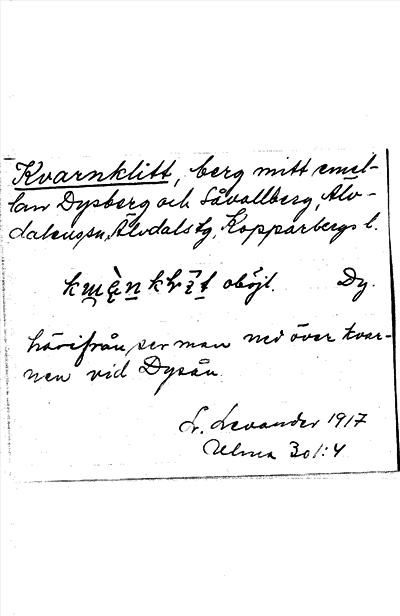 Kvarnklitt, berg mitt emel-
lan Dysberg och Såvallberg, Älv-
dalens sn, Älvdals tg, Kopparbergs l.
oböjl. Dy.
härifrån ser man ned över kvar-
nen vid Dysån.
L. Levander 1917
Ulma 301:4